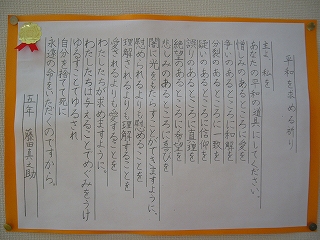 平和を求める祈り
主よ 私を
あなたの平和の道具としてください。
憎しみのあるところに愛を
争いのあるところに和解を
分裂のあるところに一致を
疑いのあるところに信仰を
誤りのあるところに真理を
絶望のあるところに希望を
悲しみのあるところに喜びを
闇に光をもたらすことができますように。
慰められるよりも慰めることを
理解されるより理解することを
愛されるよりも愛することを
わたしたちが求めますように。
わたしたちは与えることでめぐみをうけ
ゆるすことでゆるされ
自分を捨てて死に
永遠の命をいただくのですから。
五年 藤田真之助